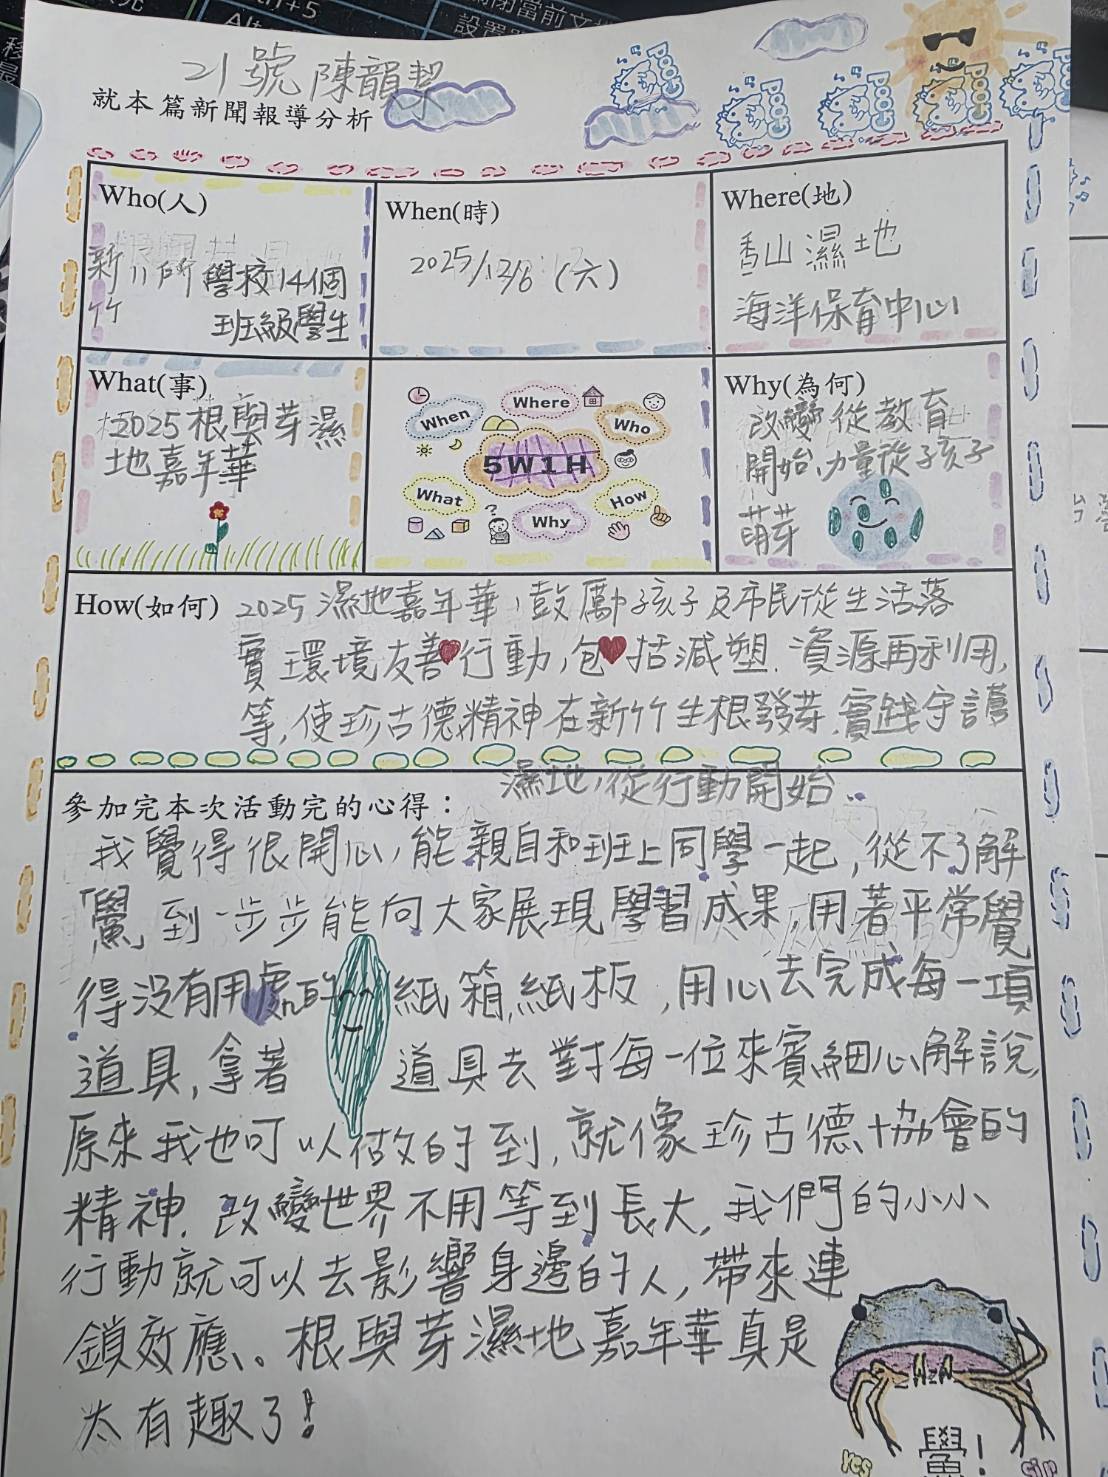 21號 陳韻潔
就本篇新聞報導分析
Who(人)
新竹 11所 學校14個
班級學生
When(時)
2025/12/6 (六)
Where(地)
香山濕地
海洋保育中心
What(事)
2025根與芽濕
地嘉年華
When
Where
Who
5W1H
What
Why
How
Why(為何)
改變從教育
開始,力量從孩子
萌芽
How(如何)
2025濕地嘉年華,鼓勵孩子及市民從生活落
實環境友善行動,包括減塑.資源再利用,
等,使珍古德精神在新竹生根發芽.實踐守護
濕地,從行動開始..
參加完本次活動完的心得：
我覺得很開心,能親自和班上同學一起,從不了解
「鱟」到一步步能向大家展現學習成果,用著平常覺
得沒有用處的紙箱,紙板,用心去完成每一項
道具,拿著道具去對每一位來賓細心解說,
原來我也可以做的到,就像珍古德協會的
精神.改變世界不用等到長大,我們的小小
行動就可以去影響身邊的人,帶來連
鎖效應。根與芽濕地嘉年華真是
太有趣了!
鱟!
Yes
Sir